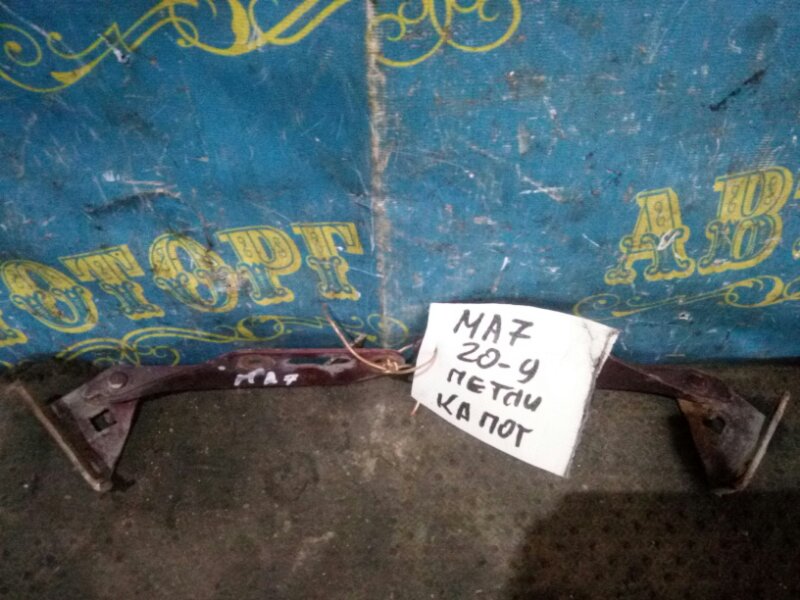 ОТОРГ
АВ
МА7
МА7
20-9
ПЕТЛИ
КАПОТ